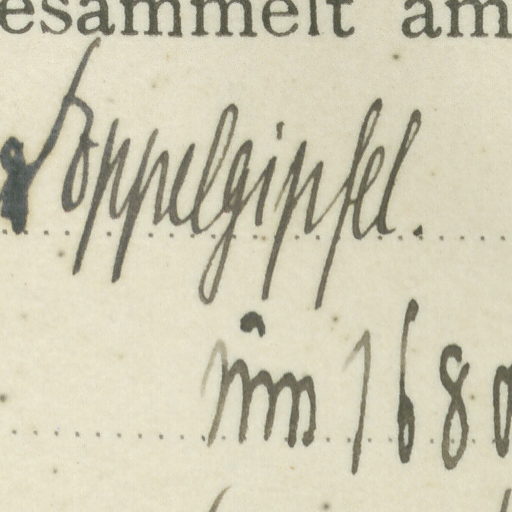 esammelt am
Doppelgipfel.
im 1680